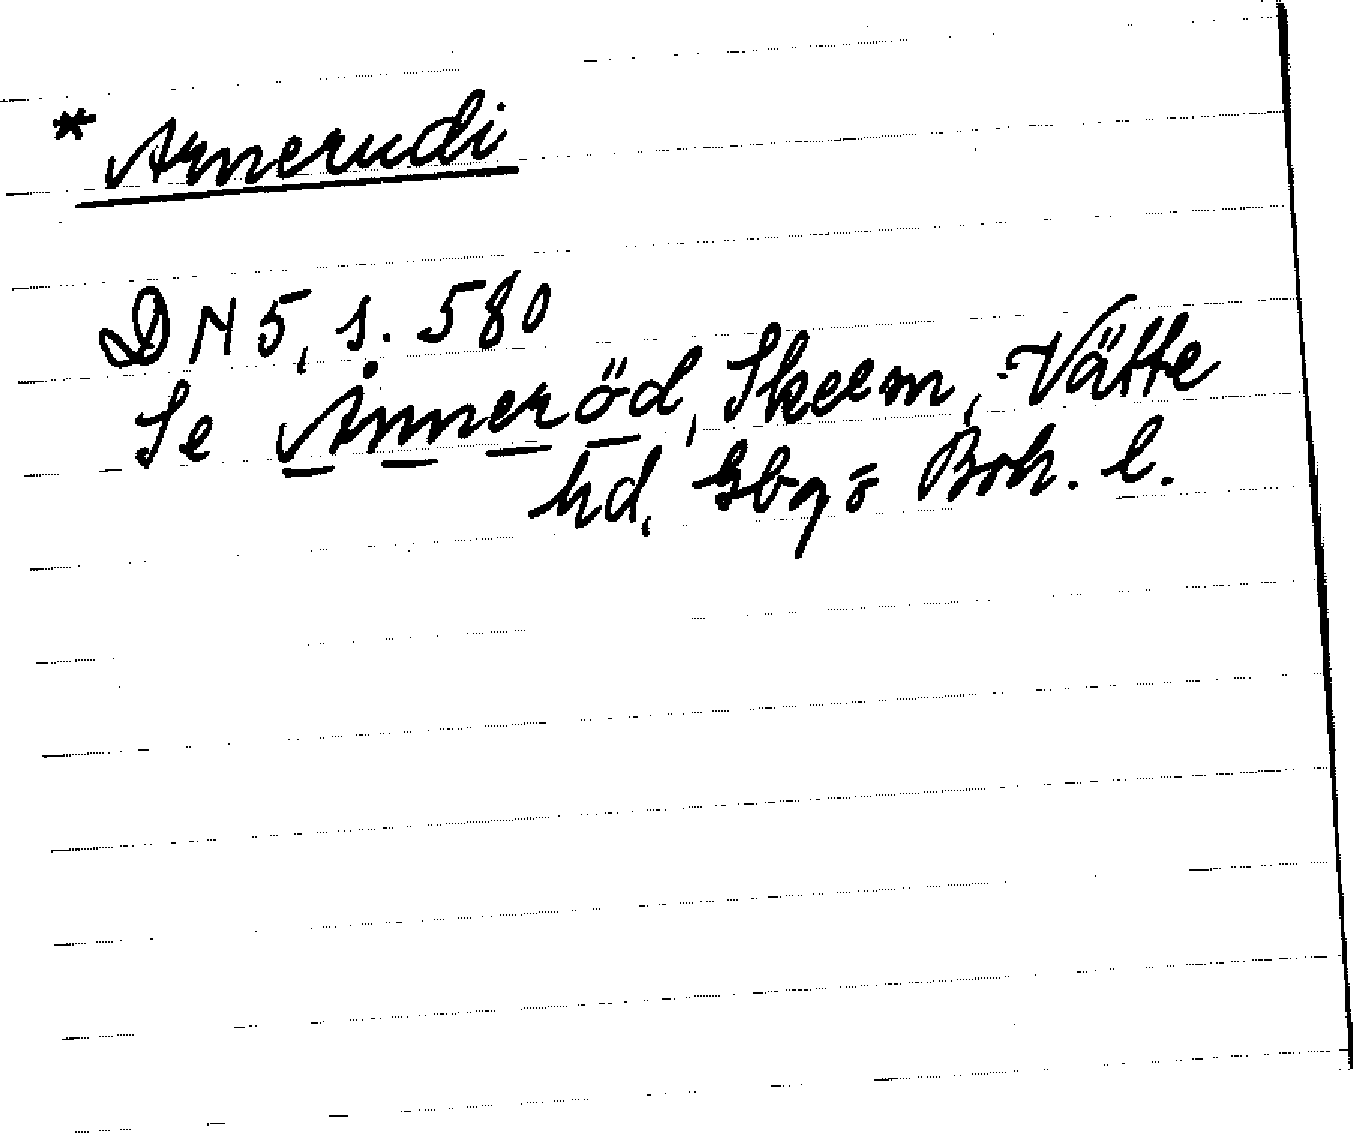 * Arnerudi
DN 5, s. 580
Se Ånneröd, Skeem, Vätte
hd, Gbg o Boh. l.